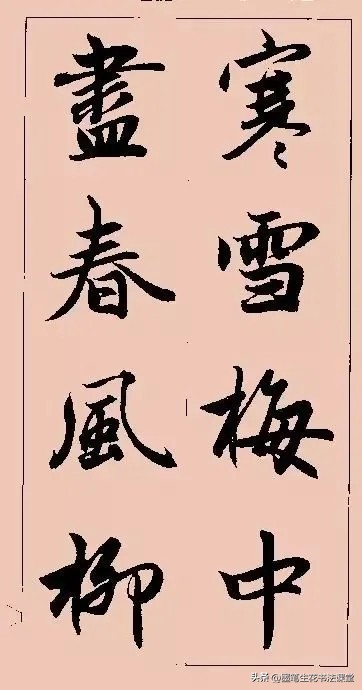 寒雪梅中
盡春風柳
头条@墨笔生花书法课堂